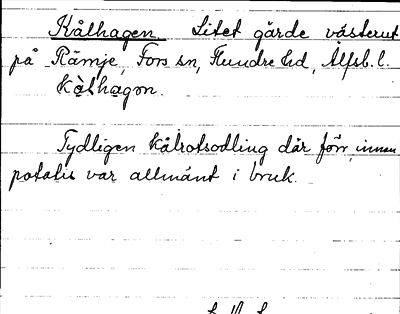 Kålhagen. Litet gärde västerut
på Rämje, Fors sn, Flundre hd, Älfsb. l.
kàlhagɷn.
Tydligen kålrotsodling där förr, innan
potatis var allmänt i bruk.